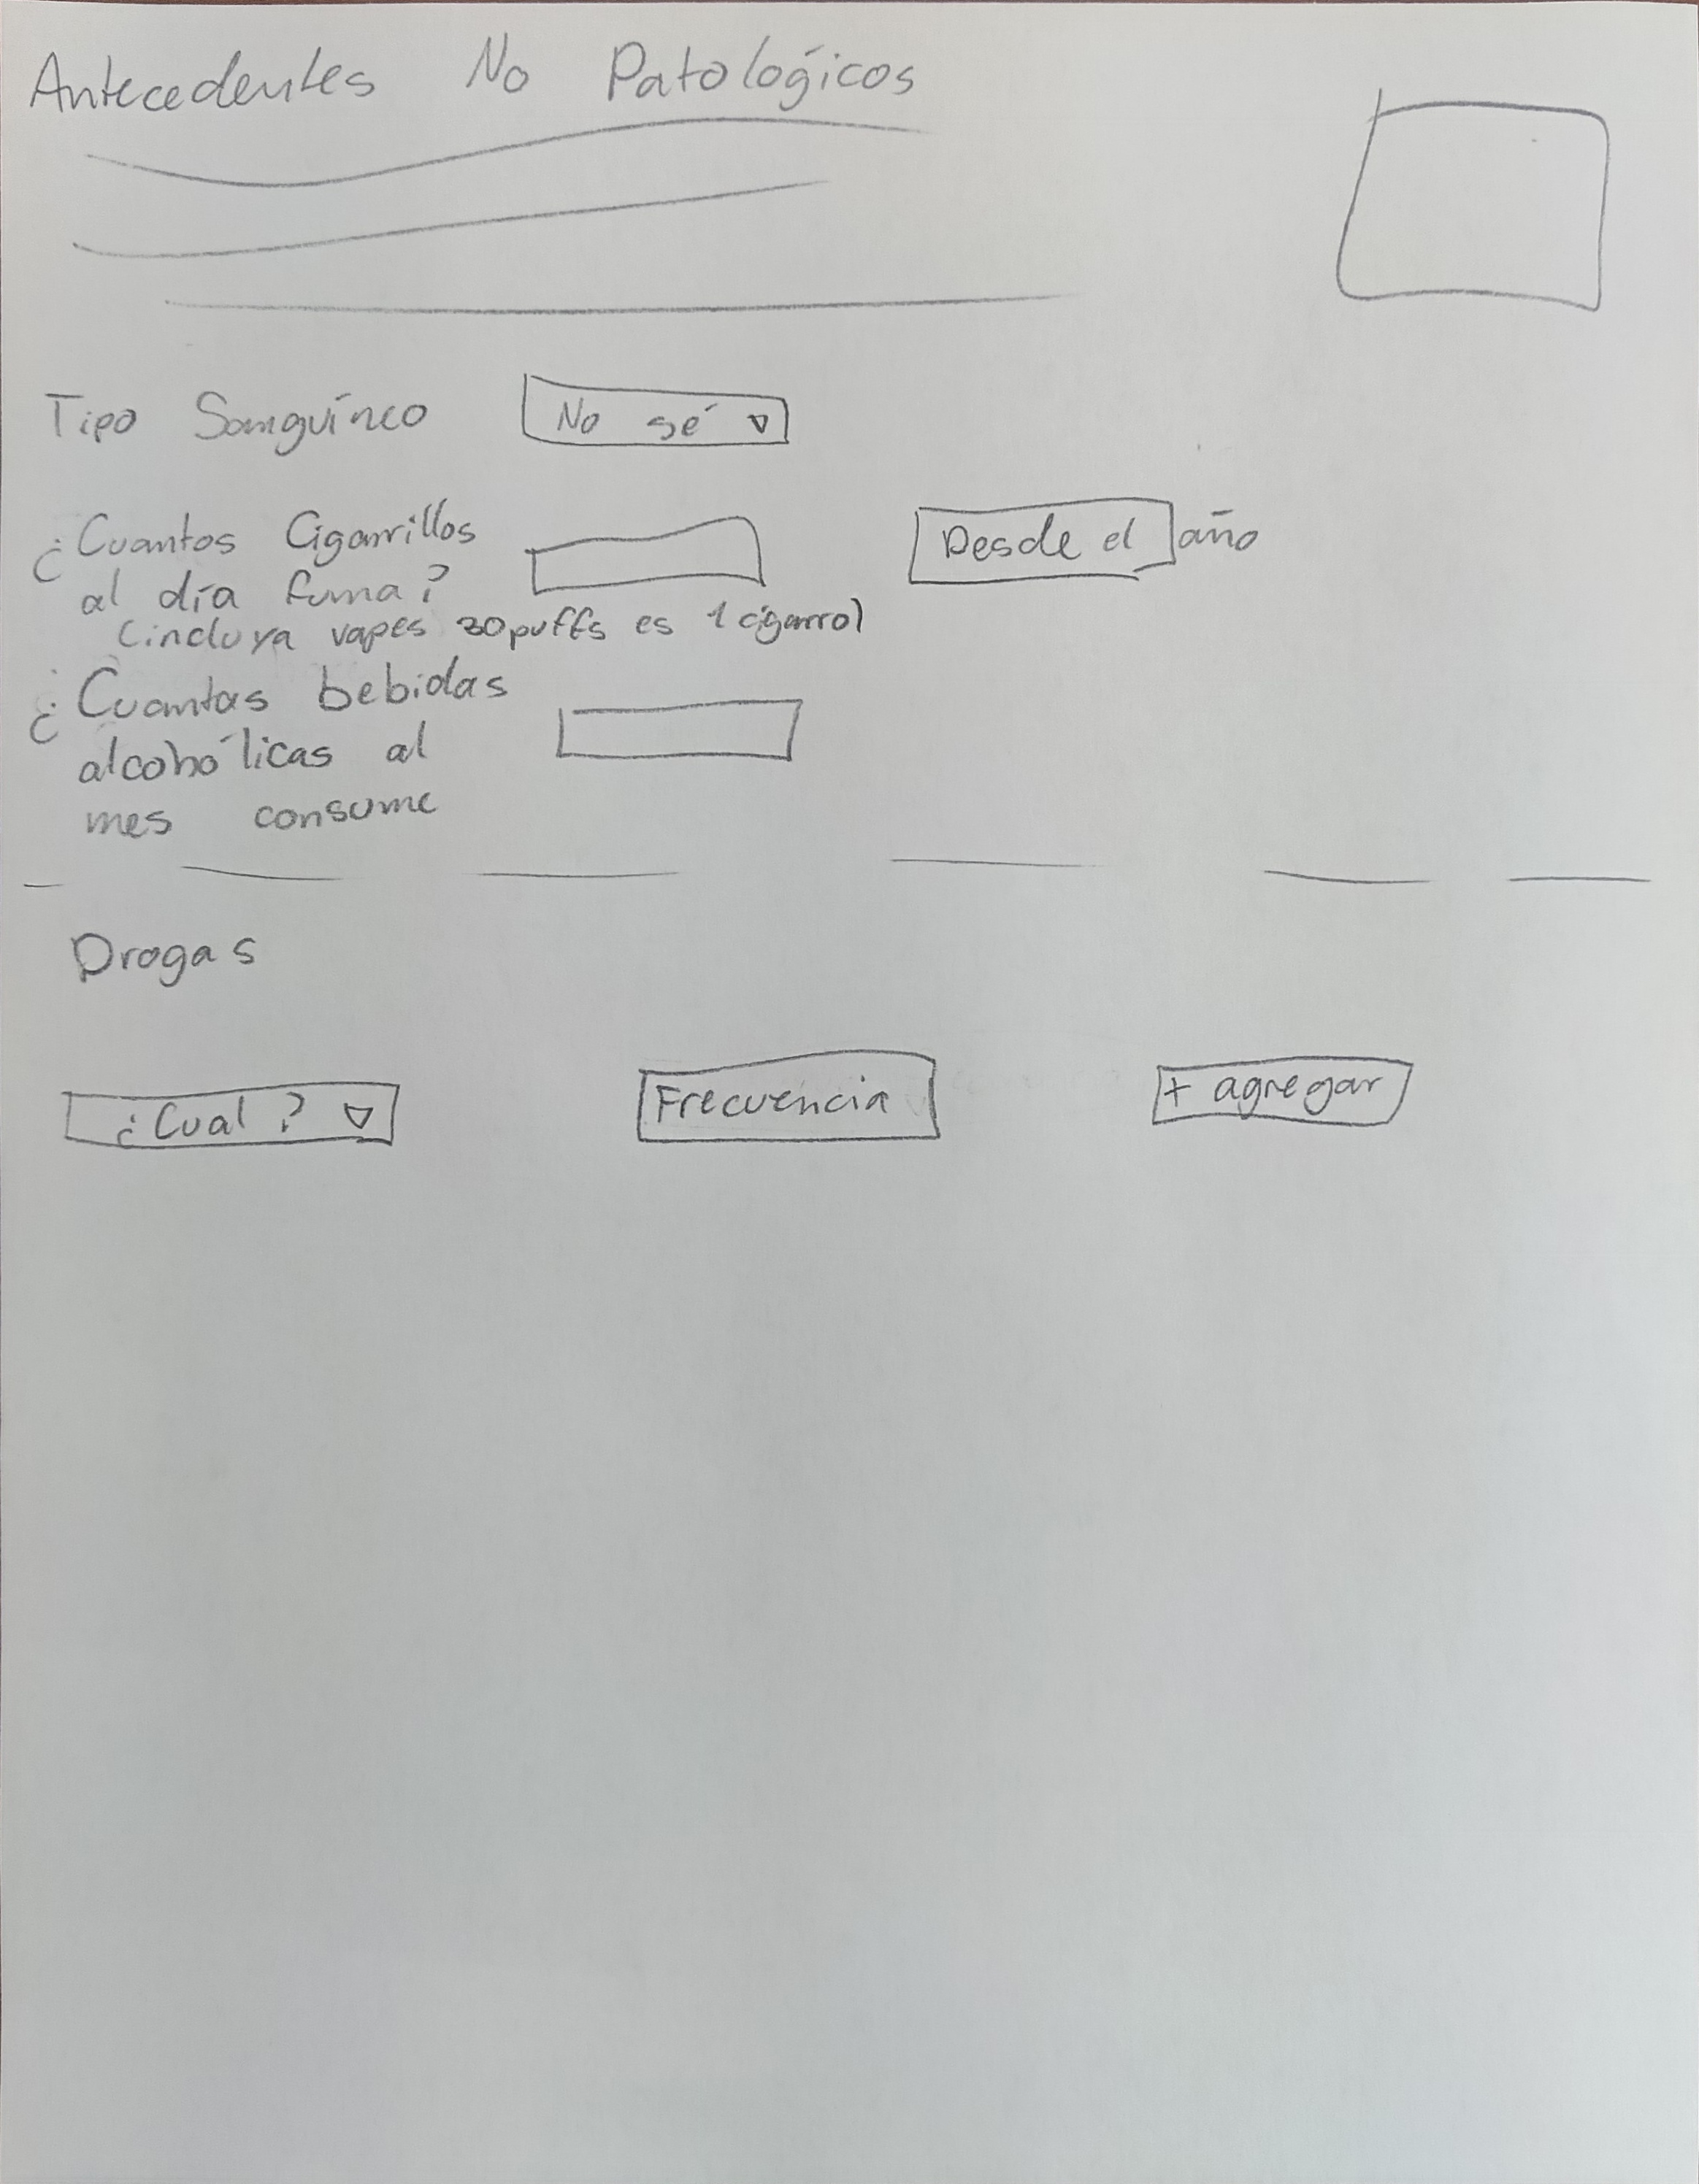 Antecedentes No Patológicos
Tipo Sanguíneo No sé
¿Cuantos Cigarrillos
al día fuma?
Desde el año
(incluya vapes 30puffs es 1 cigarro)
¿Cuantas bebidas
alcohólicas al
mes consume
Drogas
¿Cual? Frecuencia + agregar